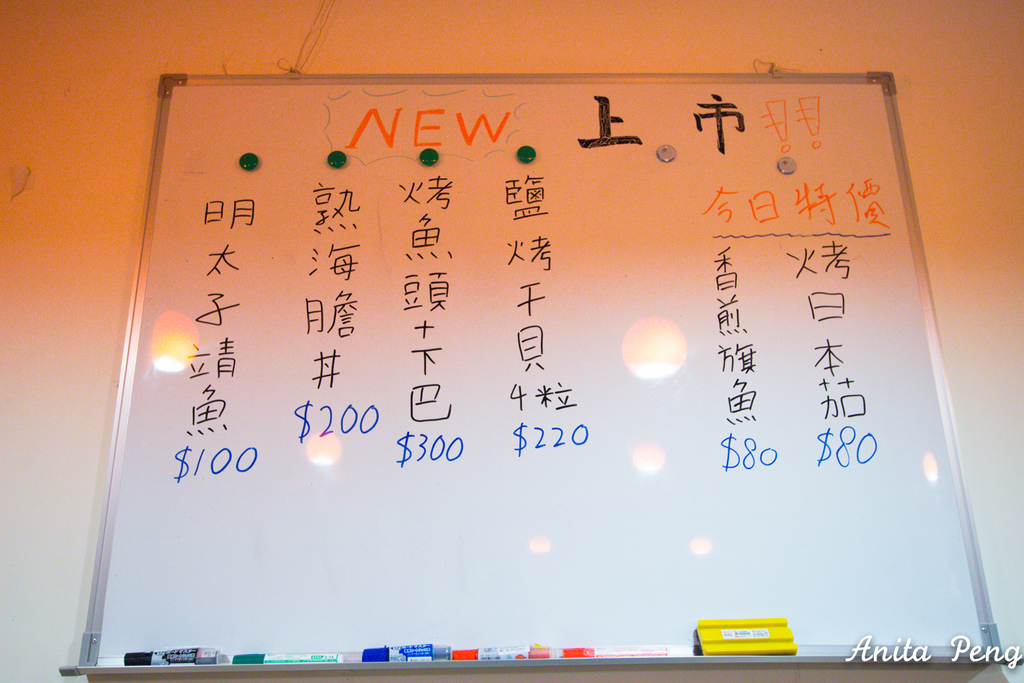 NEW 上市!!
今日特價
烤日本茄
$80
香煎旗魚
$80
鹽烤干貝4粒
$220
烤魚頭+下巴
$300
熟海膽丼
$200
明太子靖魚
$100
Anita Peng